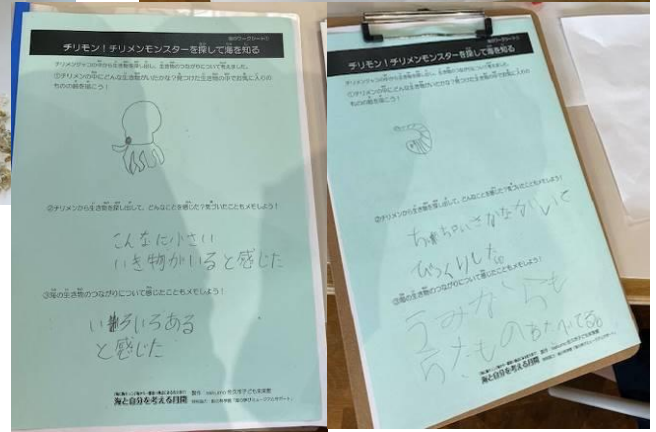 海のワークシート①
チリモン！チリメンモンスターを探して海を知る
チリメンジャコの中から生き物を探し出し、生き物のつながりについて考えました。
①チリメンの中にどんな生き物がいたかな？見つけた生き物の中でお気に入りの
ものの絵を描こう！
②チリメンから生き物を探し出して、どんなことを感じた？気づいたこともメモしよう！
こんなに小さい
いき物がいると感じた
③海の生き物のつながりについて感じたこともメモしよう！
いろいろある
と感じた
海と自分を考える日間
海のワークシート①
チリモン！チリメンモンスターを探して海を知る
チリメンジャコの中から生き物を探し出し、生き物のつながりについて考えました。
①チリメンの中にどんな生き物がいたかな？見つけた生き物の中でお気に入りの
ものの絵を描こう！
②チリメンから生き物を探し出して、どんなことを感じた？気づいたこともメモしよう！
ちっちゃいさかながいて
びっくりした。
③海の生き物のつながりについて感じたこともメモしよう！
海と自分を考える日間